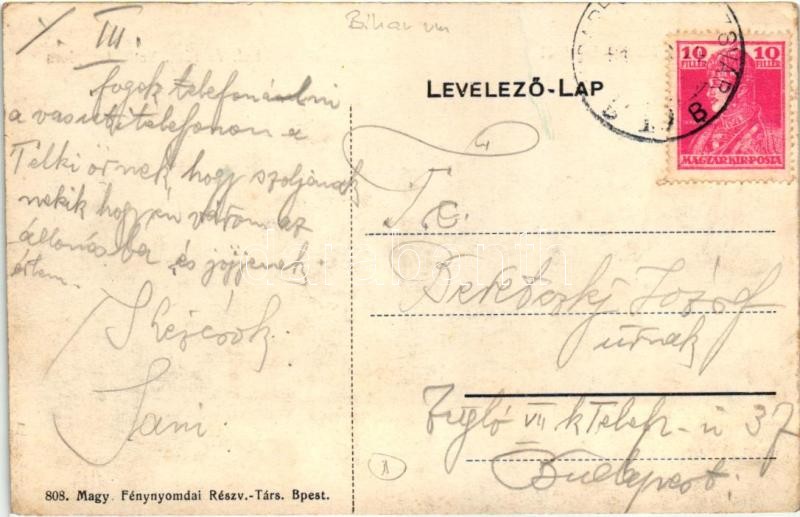 Bihar vm
III.
fogok telefonálni
a vasuti telefonon a
Telki őrnek, hogy szoljanak
nekik hogy én várom az
állomásba és jöjjenek
értem.
Kézcsók
Sani
808. Magy. Fénynyomdai Részv.-Társ. Bpest.
LEVELEZŐ-LAP
10 10
FILLÉR FILLÉR
MAGYAR KIR. POSTA
B
T.c.
József
úrnak
Zugló VII k Telep-u 37
Budapest.
darabanth